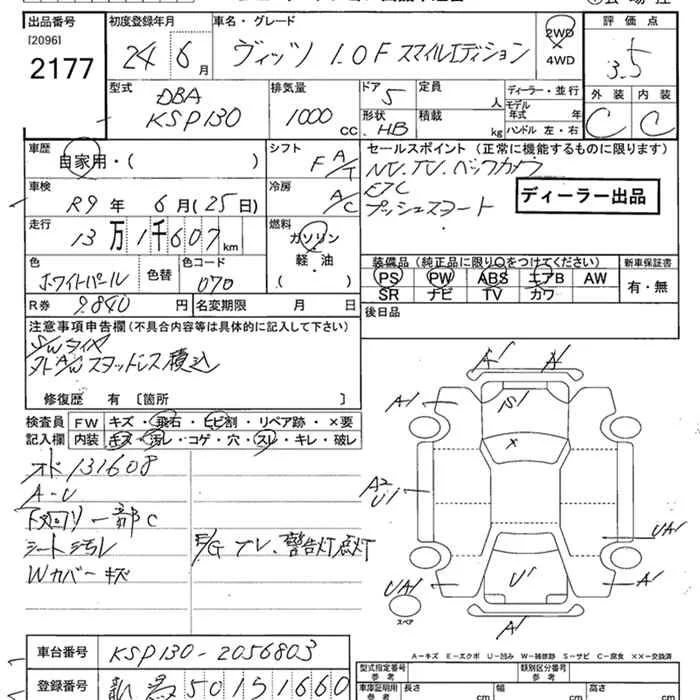 出品番号
[2096]
2177
初度登録年月
24 6月
車名・グレード
ヴィッツ 1.0F スマイルエディション
2WD
4WD
評価点
3.5
外装 内装
C C
型式
DBA
KSP130
排気量
1000 CC
ドア 5
形状 HB
定員 人
積載 kg
ディーラー・並行
モデル年式 年式
ハンドル 左・右
車歴
自家用・( )
シフト
F A/T
セールスポイント (正常に機能するものに限ります)
NV.TV.バックカメラ
ETC
プッシュスタート
ディーラー出品
車検
R9年 6月(25日)
冷房
A/C
走行
13万1千607km
燃料
ガソリン
軽・油
( )
色
ホワイトパール
色替
色コード
070
装備品 (純正品に限り○をつけてください)
PS PW ABS エアB AW
SR ナビ TV カワ
新車保証書
有・無
R券 9.840円
名変期限 月 日
後日品
注意事項申告欄 (不具合内容等は具体的に記入して下さい)
S/Wタイヤ
外A/Wスタッドレス積込
修復歴 有 [箇所 ]
検査員記入欄
FW キズ・飛石・ヒビ割・リペア跡・×要
内装 キズ・汚レ・コゲ・穴・スレ・キレ・破レ
オド 131608
A-U
下廻り一部C
シート汚レ
Wカバーキズ
E/G ブレ、警告灯点灯
A1 A1
A1
S1
×
A2
U1
UA1
UA1
U1
A1
A1
スペア
A-キズ E-エクボ U-凹み W-補修跡 S-サビ C-腐食 ××-交換済
車台番号
KSP130-2056803
登録番号
新潟 501 51660
型式指定番号 参考
類別区分番号 参考
車庫証明用 参考
長さ cm
幅 cm
高さ cm